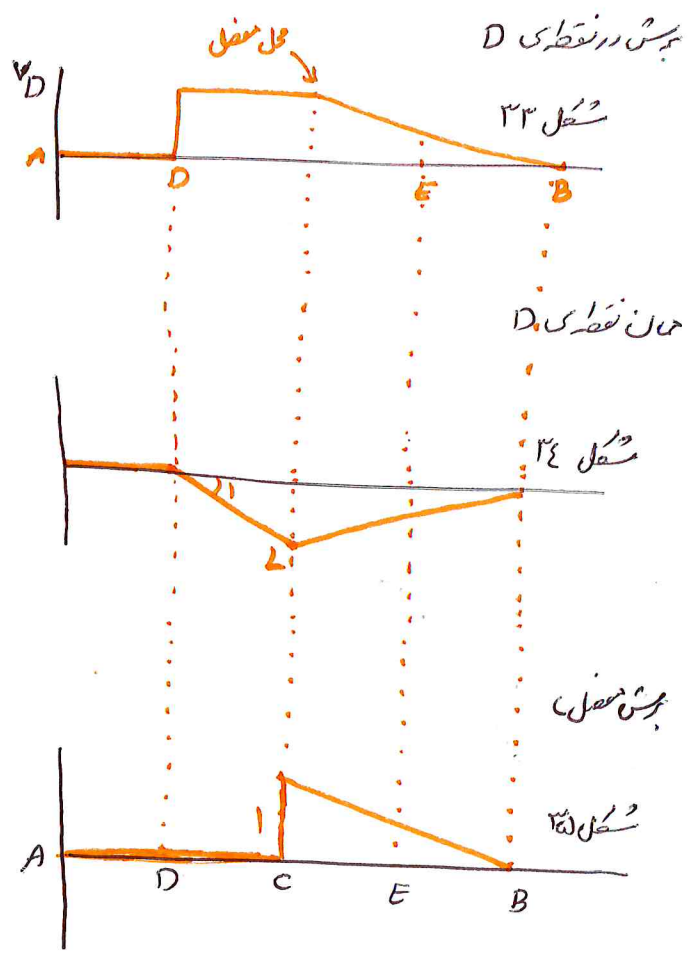 برش در نقطه‌ی D
محل مفصل
V D
شکل ۳۳
A
D E B
ممان نقطه‌ی D
شکل ۳۴
1
L
برش مفصل C
شکل ۳۵
1
A
D C E B